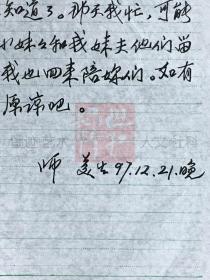 知道了。那天我忙，可能
小妹和我妹夫他们留
我也回来陪妳们。如有
原谅吧。
师 美生 97.12.21.晚